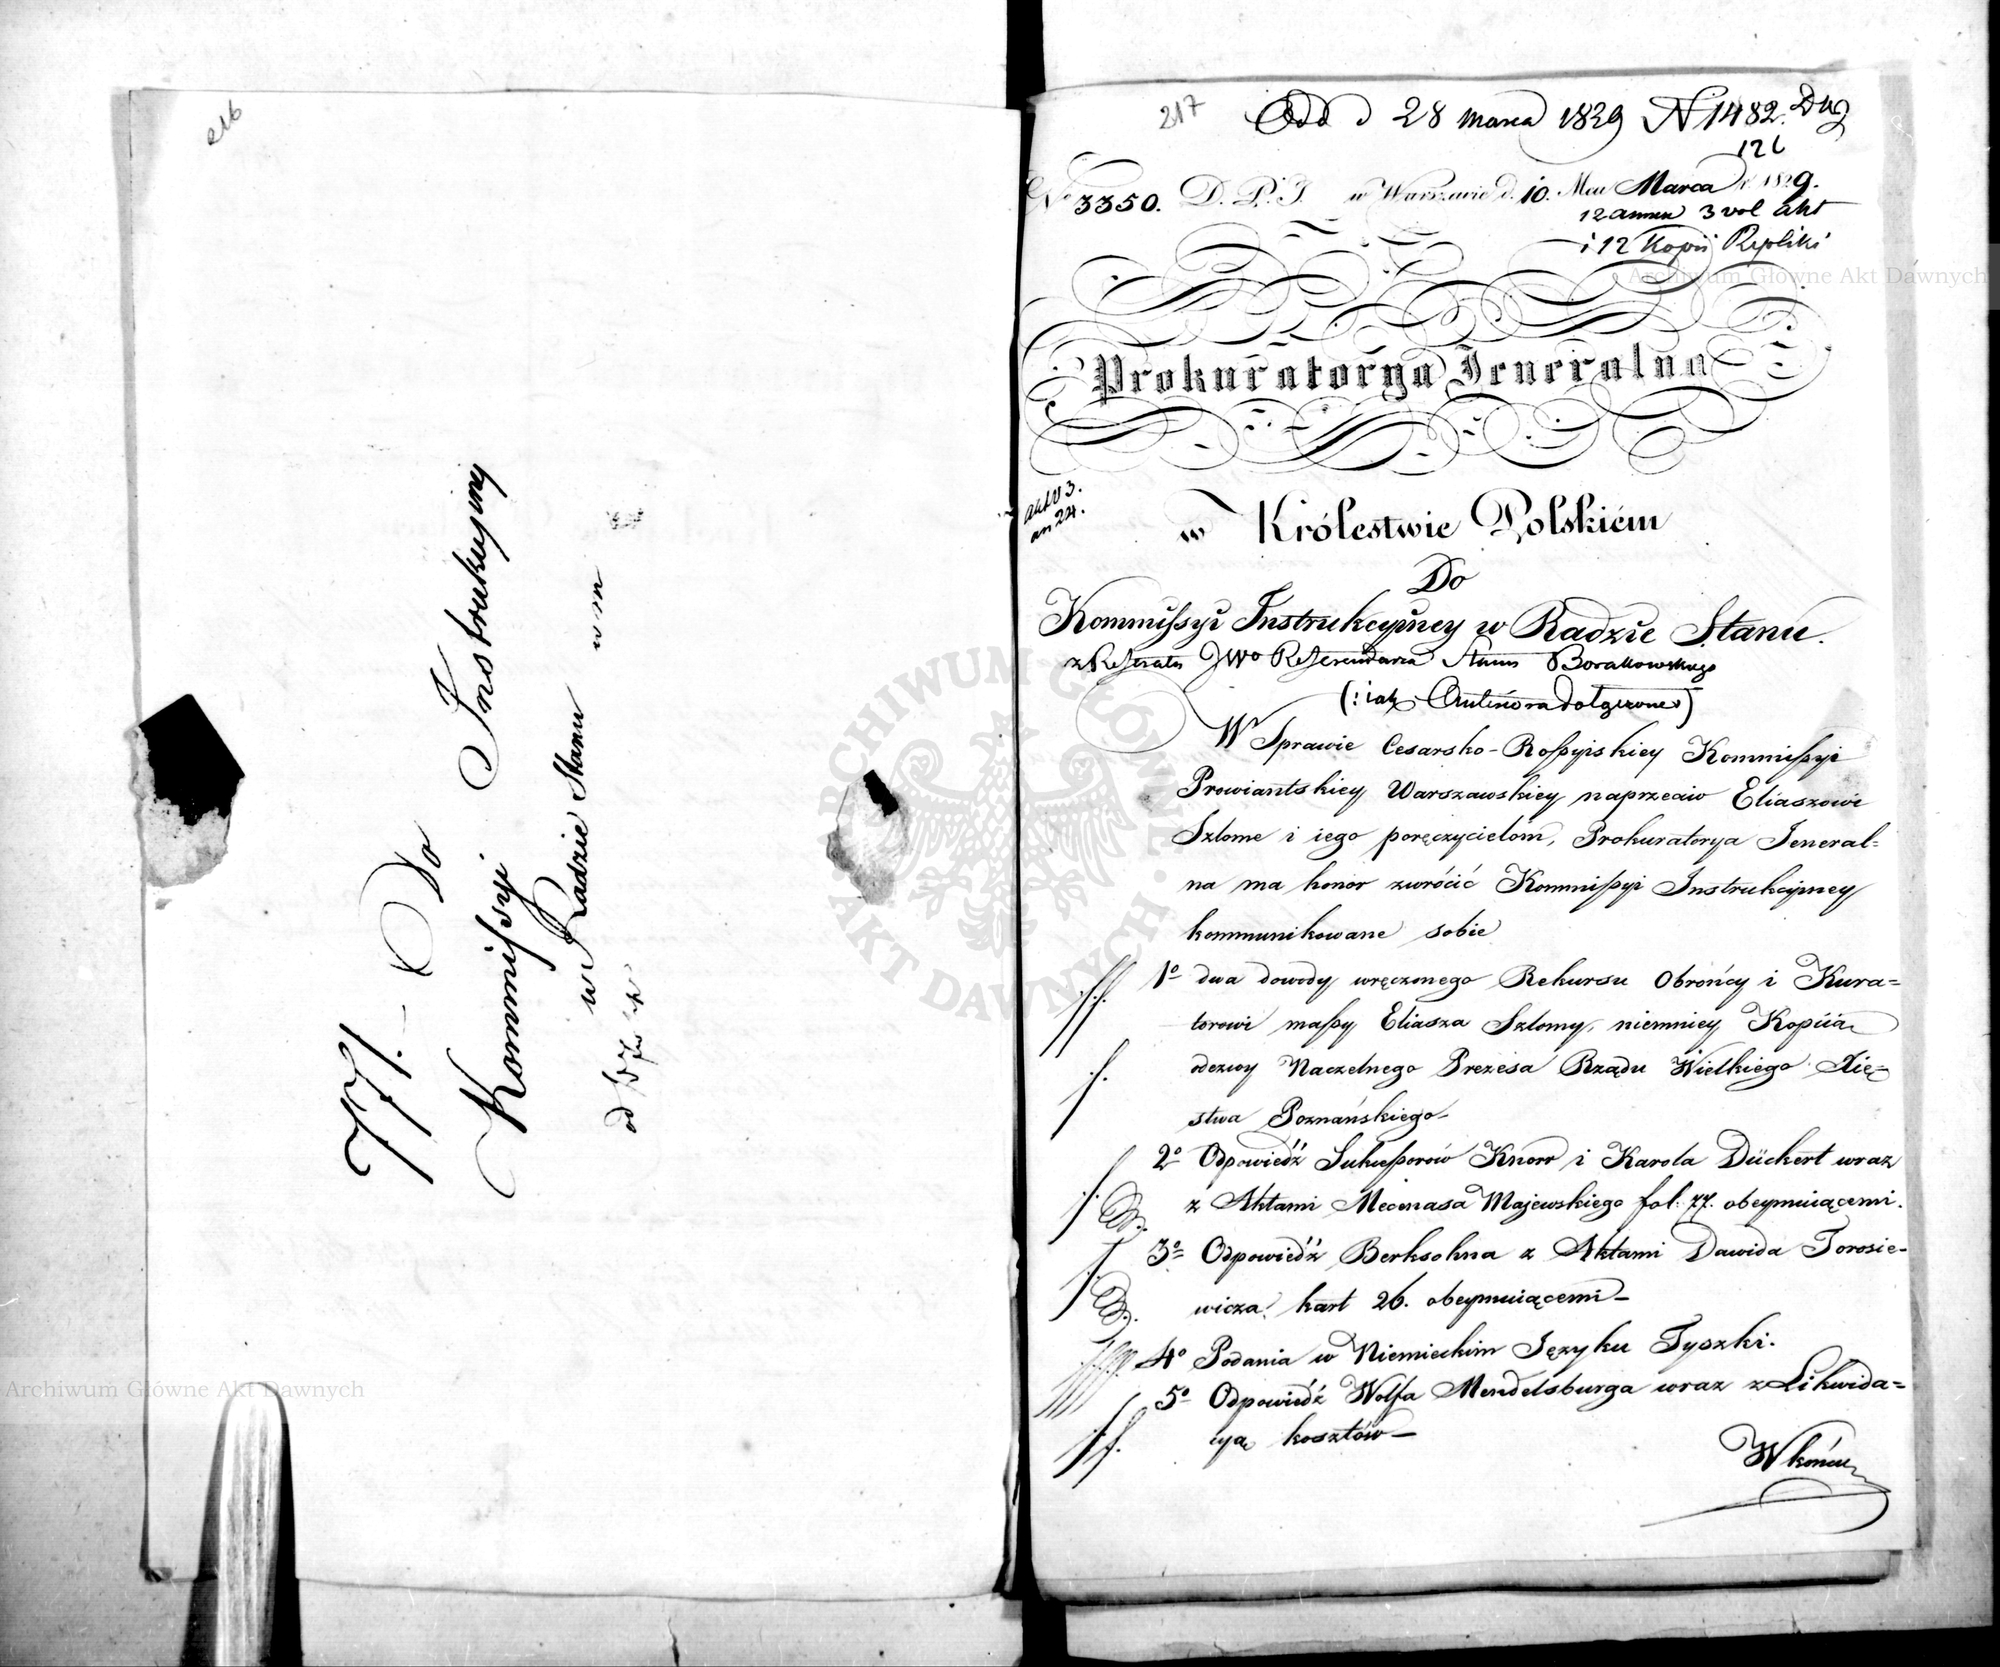 216
77. Do
Kommissyi Instrukcyiney
w Radzie Stanu
w m
217
Odd d 28 marca 1829 N 1482. Dz
126
No 3350. D. P. J. w Warszawie d. 10. Mca Marca r. 1829.
12 annex 3 vol akt
i 12 Kopii Repliki
Prokuratorya Jeneralna
akt v 3.
an 24.
w Królestwie Polskiém
Do
Kommissyi Instrukcyiney w Radzie Stanu.
z Referatu JWo Referendarza Stanu Borakowskiego
W Sprawie Cesarsko-Rossyiskiey Kommissyi
Prowiantskiey Warszawskiey naprzeciw Eliaszowi
Szlome i iego poręczycielom, Prokuratorya Jeneral=
na ma honor zwrócić Kommissyi Instrukcyiney
kommunikowane sobie
1o dwa dowody wręczonego Rekursu Obrońcy i Kura=
torowi massy Eliasza Szlomy, niemniey Kopiią
odezwy Naczelnego Prezesa Rządu Wielkiego Xię=
stwa Poznańskiego-
2o Odpowiedź Sukcessorów Knorr i Karola Dückert wraz
z Aktami Mecenasa Majewskiego fol. 77. obeymuiącemi.
3o Odpowiedź Berksohna z Aktami Dawida Torosie-
wicza, kart 26. obeymuiącemi-
4o Podania w Niemieckim Języku Tyszki.
5o Odpowiedź Wolfa Mendelsburga wraz z Likwida=
cyą kosztów-
W końcu
Archiwum Główne Akt Dawnych
Archiwum Główne Akt Dawnych
ARCHIWUM GŁÓWNE AKT DAWNYCH